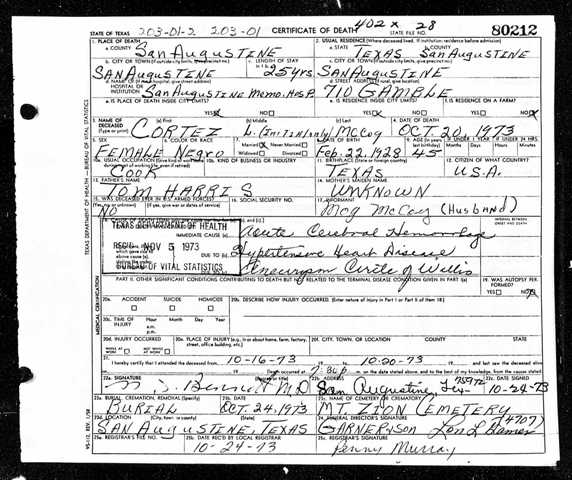 402 x 28
203-01-2 203-01
STATE OF TEXAS CERTIFICATE OF DEATH STATE FILE NO. 80212
1. PLACE OF DEATH 2. USUAL RESIDENCE (Where deceased lived. If institution: residence before admission)
a. COUNTY San Augustine a. STATE TEXAS b. COUNTY San Augustine
b. CITY OR TOWN (If outside city limits, give precinct no.) c. LENGTH OF STAY c. CITY OR TOWN (If outside city limits, give precinct no.)
San Augustine 25 yrs. San Augustine
d. NAME OF (If not in hospital, give street address) HOSPITAL OR INSTITUTION San Augustine Memo. Hosp. d. STREET ADDRESS 710 GAMBLE
e. IS PLACE OF DEATH INSIDE CITY LIMITS? e. IS RESIDENCE INSIDE CITY LIMITS? f. IS RESIDENCE ON A FARM?
YES NO YES NO YES NO
3. NAME OF DECEASED (a) First (b) Middle (c) Last 4. DATE OF DEATH
(Type or print) CORTEZ L. (Initial only) McCoy OCT. 20, 1973
5. SEX 7. Married Never Married Widowed Divorced
FEMALE Negro Feb. 22, 1928 45
10a. USUAL OCCUPATION 10b. KIND OF BUSINESS OR INDUSTRY 11. BIRTHPLACE 12. CITIZEN OF WHAT COUNTRY?
COOK TEXAS U.S.A.
13. FATHER'S NAME 14. MOTHER'S MAIDEN NAME
TOM HARRIS UNKNOWN
15. WAS DECEASED EVER IN U.S. ARMED FORCES? 16. SOCIAL SECURITY NO. 17. INFORMANT
NO McCoy (Husband)
INTERVAL BETWEEN ONSET AND DEATH
TEXAS DEPARTMENT OF HEALTH
REC'D NOV 5 1973
BUREAU OF VITAL STATISTICS
IMMEDIATE CAUSE (a) Acute Cerebral Hemorrhage
DUE TO Hypertensive Heart Disease
DUE TO (c) Aneurysm Circle of Willis
PART II. OTHER SIGNIFICANT CONDITIONS CONTRIBUTING TO DEATH BUT NOT RELATED TO THE TERMINAL DISEASE CONDITION GIVEN IN PART I(a) 19. WAS AUTOPSY PERFORMED?
YES NO
20a. ACCIDENT SUICIDE HOMICIDE 20b. DESCRIBE HOW INJURY OCCURRED. (Enter nature of injury in Part I or Part II of item 18)
20c. TIME OF INJURY Hour Month Day Year
a.m.
p.m.
20d. INJURY OCCURRED 20e. PLACE OF INJURY (e.g. in or about home, farm, factory, street, office building, etc.) 20f. CITY, TOWN, OR LOCATION COUNTY STATE
WHILE AT WORK NOT WHILE AT WORK
21. I hereby certify that I attended the deceased from 10-16-73 to 10-20-73 and last saw the deceased alive
Death occurred at m. on the date stated above, and to the best of my knowledge, from the causes stated.
22a. SIGNATURE 22b. ADDRESS 22c. DATE SIGNED
Bennett M.D. San Augustine, Tex. 75972 10-24-73
23a. BURIAL, CREMATION, REMOVAL (Specify) 23b. DATE 23c. NAME OF CEMETERY OR CREMATORY
BURIAL OCT. 24, 1973 MT. ZION CEMETERY
23d. LOCATION (City, town, or county) (State) 24. FUNERAL DIRECTOR'S SIGNATURE
SAN AUGUSTINE, TEXAS (4707)
25a. REGISTRAR'S FILE NO. 25b. DATE REC'D BY LOCAL REGISTRAR 25c. REGISTRAR'S SIGNATURE
10-24-73 Penny Murray
TEXAS DEPARTMENT OF HEALTH—BUREAU OF VITAL STATISTICS
MEDICAL CERTIFICATION